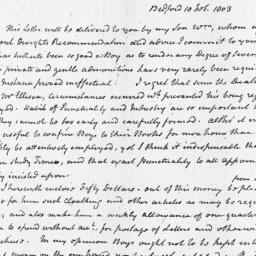 Bedford 10 Feb. 1803
This Letter will be delivered to you by my Son Wm, whom a
and Dwights Recommendation and advice I commit to your
has hitherto been so good a Boy as to under any degree of sever
private and gentle admonitions have very rarely been requi
Instance proved ineffectual. I regret that since the Death
Mr. Ellison, Circumstances occurred wh. prevented his being reg
Habits of Punctuality and Industry are so important
they cannot be too early and carefully formed.
useful to confine Boys to their Books for more hours than
be attentively employed, yet I think it indispensable tha
in study Times, and that exact Punctuality to all appoin
insisted upon.
from
I herewith enclose Fifty Dollars. out of this money be plea
for him such Cloathing and other articles as may be requi
and also make him a weekly allowance of one quarter
to spend without acct. for postages of Letters and otherwi
In my opinion Boys ought not to be kept enti